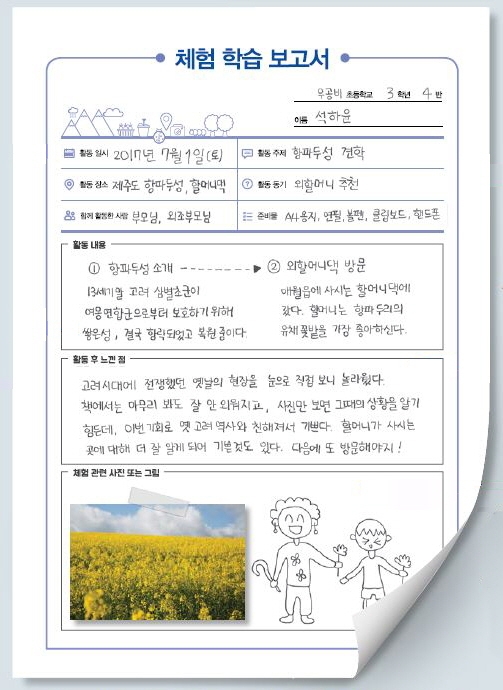 체험 학습 보고서
우공비 초등학교 3 학년 4 반
이름 석하윤
활동 일시 2017년 7월 1일(토)
활동 주제 항파두성 견학
활동 장소 제주도 항파두성, 할머니댁
활동 동기 외할머니 추천
함께 활동한 사람 부모님, 외조부모님
준비물 A4용지, 연필, 볼펜, 클립보드, 핸드폰
활동 내용
① 항파두성 소개
13세기말 고려 삼별초군이
여몽연합군으로부터 보호하기 위해
쌓은성, 결국 함락되었고 복원 중이다.
② 외할머니댁 방문
애월읍에 사시는 할머니댁에
갔다. 할머니는 항파두리의
유채꽃밭을 가장 좋아하신다.
활동 후 느낀 점
고려시대에 전쟁했던 옛날의 현장을 눈으로 직접 보니 놀라웠다.
책에서는 아무리 봐도 잘 안 외워지고, 사진만 보면 그때의 상황을 알기
힘든데, 이번기회로 옛 고려 역사와 친해져서 기쁘다. 할머니가 사시는
곳에 대해 더 잘 알게 되어 기쁠것도 있다. 다음에 또 방문해야지!
체험 관련 사진 또는 그림